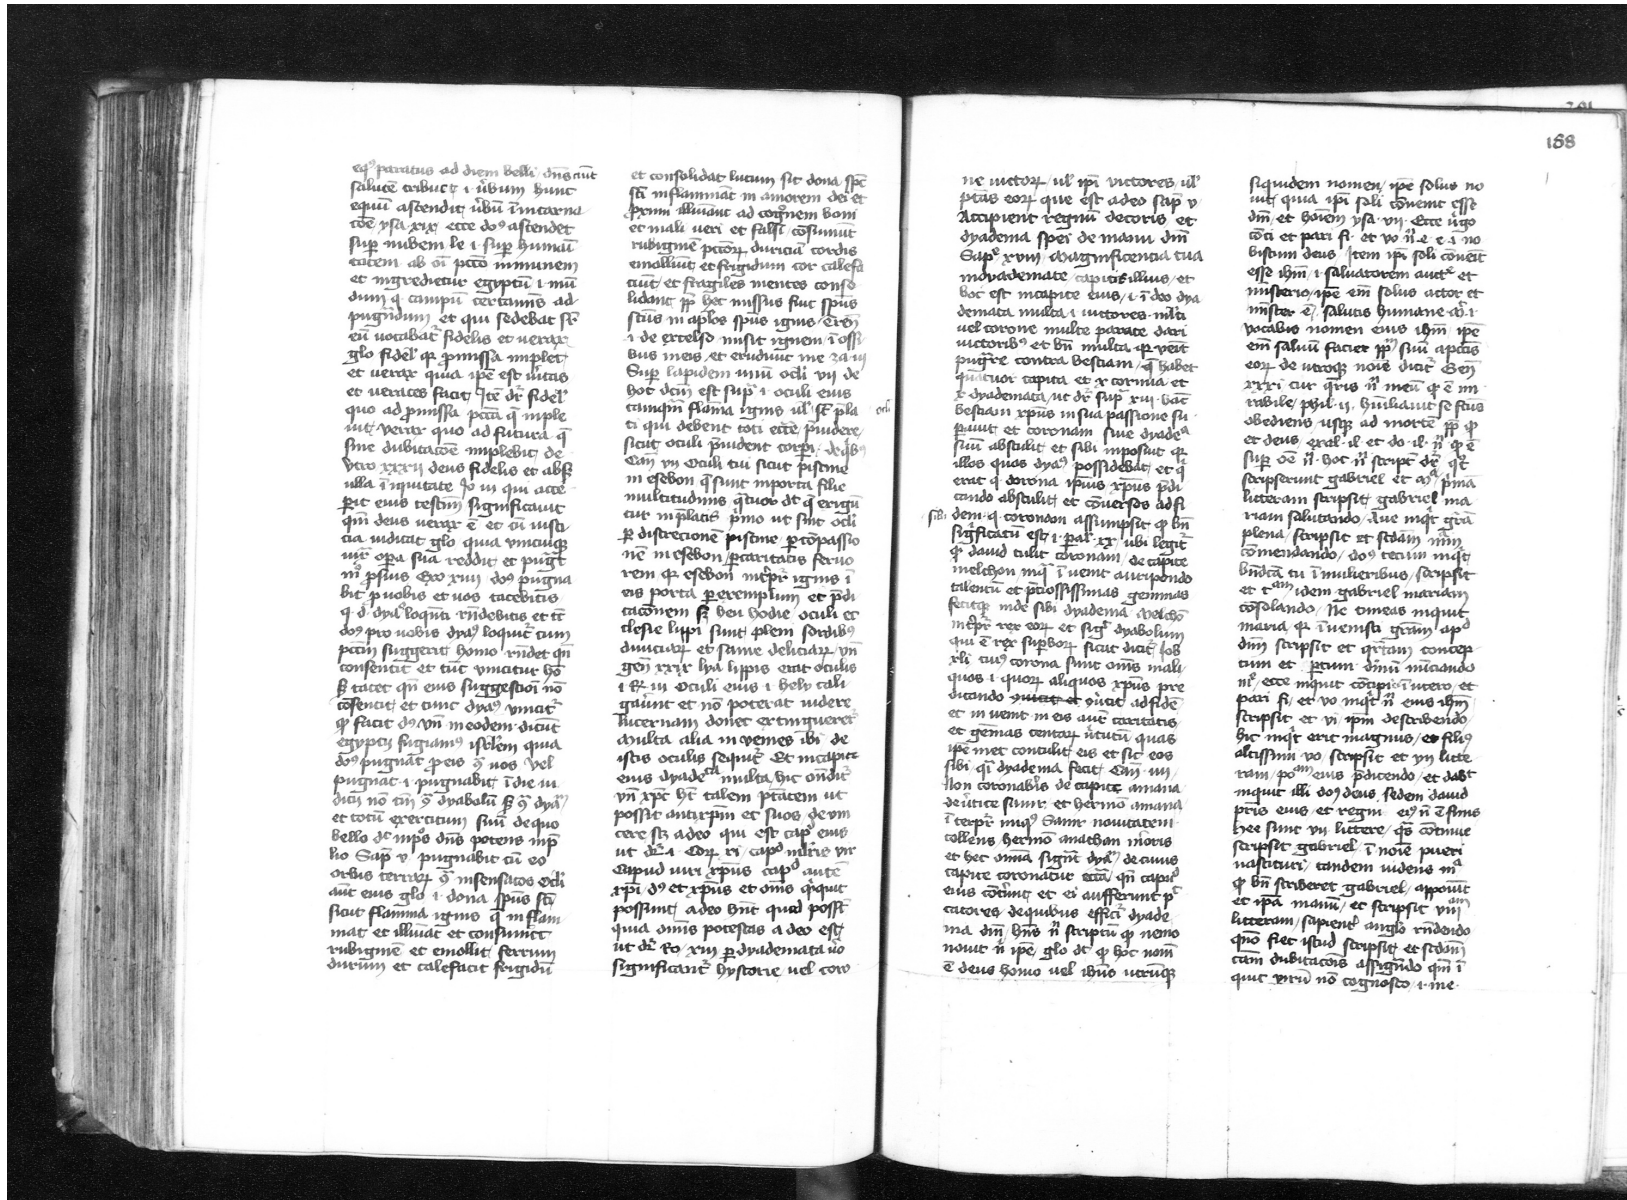 eqꝰ paratus ad diem belli dn̄s aūt
salutē tribuet i ūbum hunc
equū ascendit ūbū īncarna
cōe ysa xix ecce doꝰ ascendet
sup nubem le i sup humāi
tatem ab oī pctō inmunem
et ingredietur egyptū i mū
dum q̄ campū certaminis ad
pugnādum et qui sedebat sr̄
eū vocabat᷑ fidelis et verax
glo fidel qr ꝓmissa implet
et verax quia ipē est ūitas
et veraces facit Itē dr̄ fidel
quo ad ꝓmissa pctā q̄ imple
uit verax quo ad futura q̄
sine dubitacōe implebit de
vtro xxxii deus fidelis et absqꝫ
ulla īniquitate Jo iii qui acce
perit eius testim̄ significavit
qm̄ deus verax ē et cū iusti
cia iudicat glo quia vnicuiqꝫ
iuxͣ opera sua reddit et pugͣt
mͦ prsus Exo xiiii doꝰ pugna
bit ꝓ uobis et uos tacebitis
q d dyaͦ loquēti rn̄debitis et tc̄
doꝰ pro uobis dyaꝰ loquit᷑ cum
pctm̄ suggerit homo rn̄det qn̄
consentit et tūc vincitur ho
sꝫ tacet qn̄ eius suggestioī nō
cōsentit et tunc dyaꝰ vincit᷑
qꝫ facit dꝰ vn̄ in eodem dicūt
egyptii fugiamꝰ isrlem quia
doꝰ pugnat ꝓ eis 9ͣ nos vel
pugnat i pugnabit ī die iu
dicii nō tm̄ 9ͣ dyabolū sꝫ 9ͣ dyaͫ
et totū exercitum suū de quo
bello dr̄ inpͦs dn̄s potens in p̄
lio Sap v pugnabit cū eo
orbis terrarꝝ 9ͣ insensatos Oc̄li
aūt eius glo i dona spūs sc̄i
sicut flamma ignis q̄ inflam
mat et illuīat et consumit
rubiginē et emollit ferrum
durum et calefacit frigidū
et consolidat lutum sic dona spc̄
sc̄i inflammāt in amorem dei et
ꝓximi illuīant ad cogͦnem boni
et mali veri et falsi cōsumūt
rubiginē pctōrꝝ duriciā cordis
emolliūt et frigidum cor calefa
ciūt et fragiles mentes conso
lidant pp̄ hec missus fuit spūs
sc̄us in apl̄os spūs ignis t̄ren̄
i de excelso misit ignem ī ossi
bus meis et erudiuit me za iii
Sup lapidem unū ocl̄i vii de
hoc dcm̄ est sup i oculi eius
tamqm̄ flāma ignis ul̄ sr̄ p̄la
ti qui debent toti eccē p̄uidere
sicut oculi p̄uident corpi de q̄ibꝰ
Can̄ vii Oculi tui sicut piscine
in esebon q̄ sunt in porta filie
multitudinis q̄tuor dr̄ q̄ exigū
tur in p̄latis pͥmo ut sint ocl̄i
ꝑ discrecionē piscine ꝑ cōpassio
nē in esebon ꝑ caritatis feruo
rem qr esebon īntpr̄ ignis i
eis porta ꝑ exemplum et p̄di
cacōnem sꝫ heu hodie oculi ec
clesie lippi sunt plem̄ sordibꝰ
diuiciarꝝ et sanie deliciarꝝ vn̄
gen̄ xxix lya lippis erat oculis
i R iii Oculi eius i hely cali
gauāt et nō poterat uidere
lucernam donec extingueret᷑
Multa alia invenies ibi de
istis oculis sequit᷑ Et in capite
eius dyademͣta multa hic on̄dit᷑
vn̄ xpc̄ hꝫ talem ptātem ut
possit antixpm̄ et suos deuin
cere sꝫ a deo qui est capᵈ eius
ut dr̄ i Corꝝ xi capᵈ mlīris vir
Capud viri xpūs capᵈ autē
xpi dꝰ et xpūs et om̄s q̄cquit
possunt a deo hn̄t quod possūt
quia omis potestas a deo est
ut dr̄ Ro xiii ꝑ dyademata ū͛o
significant᷑ hystorie uel coro
ocl̄i
ne uictorꝝ ul̄ ipi victores ul̄
ptās eorꝝ que est a deo sap v
Accipient regnū decoris et
dyadema spei de manu dn̄i
Sap xviii magnificencia tua
in dyademate capitis illius et
hoc est in capite eius i ī deo dya
demata multa i uictores mlti
vel corone multe parate dari
uictoribꝰ et bn̄ multa qr uenit
pugnͣre contra bestiam q̄ habet
quatuor capita et x cornua et
x dyademata ut dr̄ sup xiii hāc
bestiam xpūs in sua passione su
ꝑauit et coronam siue dyademͣ
suū abstulit et sibi inposuit qr
illos quos dyaꝰ possidebat et q̄
erat q̄ corona ipius xpūs p̄di
cando abstulit et cōuersos ad fi
sibi dem q̄ coronam assumpsit qꝫ bn̄
significatū est i paral xx ubi legit᷑
qꝫ dauid tulit coronam de capite
melchon mqͣ īvenit auripondo
talentū et p̄ciosissimas gemmas
fecitqꝫ inde sibi dyadema Melchō
īntpr̄ rex eorꝝ et sigᷓ dyabolum
qui ē rex supborꝝ sicut dicit᷑ Job
xli cuiꝰ corona sunt om̄s mali
quos i quorꝝ aliquos xpūs pre
dicando vincit et uicit ad fidē
et in uenit in eis aur̄ caritatis
et gemas ceterarꝝ ūtutū quas
ipe met contulit eis et sic eos
sibi qͣi dyadema fecit Can̄ iiii
Non coronabis de capite amana
de ūtice sanir et hermō amana
īterpr̄ iniqͣ Sanir nouitatem
tollens hermō anathan inoris
et hec omia signāt dyaꝰ de cuius
capite coronatur eccā qn̄ capud
eius cōtīnt et ei aufferunt pc̄
catores de quibus efficit᷑ dyade
ma dn̄i hn̄s n̄ scriptū qꝫ nemo
nouit n̄ ipē glo dr̄ qꝫ hoc nom̄
ē deus homo vel ihūs utrūqꝫ
188
siquidem nomen ipē solus no
uit quia ipi soli cōuenit esse
dn̄i et hoīem ysa vii Ecce ūgo
cōci et pari fi et vo n̄ e e i no
biscum deus Item ipi soli cōueīt
esse ihm̄ i saluatorem auct᷑ et
m̄isterio ipe em̄ solus actor et
minister ē salutis humane m̄ i
vocabis nomen eius ihm̄ ipē
em̄ saluū faciet ppl̄m suū a pctīs
eorꝝ de utroqꝫ noīe dicit᷑ Gen̄
xxxii cur q̄ris n̄ meū qꝫ ē mi
rabile phil ii hūiliauit se fctūs
obediens usqꝫ ad mortē pp̄ qꝫ
et deus exal il et do il n̄ qꝫ ē
sup oē n̄ hoc n̄ script dr̄ qꝛ
scripserunt gabriel et mͣ pͥmā
litteram scripsit gabriel ma
riam salutando Aue inqͥt grā
plena scripsit et scdam lr̄am
cōmendando doꝰ tecum inqͥt
bn̄dcā tu ī mulieribus scripsit
et tᷓam idem gabriel mariam
cōsolando Ne timeas inquit
maria qr īvenisti grām apᵈ
dm̄ scripsit et qrͣtam concep
tum et ꝑtum dīum nūciando
mͤ ecce inquit cōcipies ī utero et
pari fi et vo inqͥt n̄ eius ihm̄
scripsit et vi ipm̄ describendo
hic inqͥt erit magnus et filiꝰ
altissimi vo scripsit et vii litte
ram poᷓam eius p̄dicendo et dabt
inquit illi doꝰ deus sedem dauid
pris eius et regni eiꝰ n̄ ē finis
hee sunt vii littere q̄s cōtinue
scripsit gabriel ī noīe pueri
nascituri tandem uidens mͣ
qꝫ bn̄ scriberet gabriel apposuit
et ipā manū et scripsit viiiᷓam
litteram sapient᷑ anglo rn̄dendo
quō fiet istud scripsit et scdam
cam dubitacōis assignādo qm̄ ī
quit virū nō cognosco i me